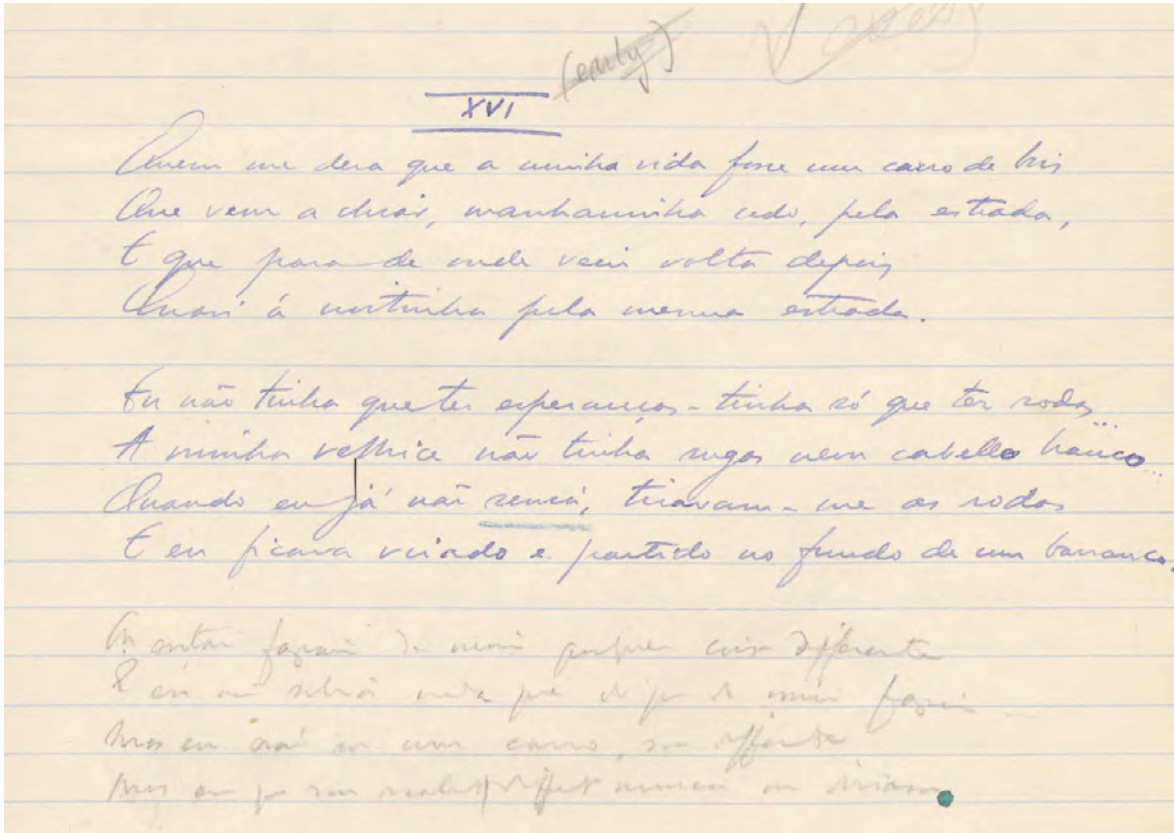 (early)
XVI
Quem me dera que a minha vida fosse um carro de bois
Que vem a chiar, manhaninha cedo, pela estrada,
E que para de onde veio volta depois
Quasi á noitinha pela mesma estrada.
Eu não tinha que ter esperanças - tinha só que ter rodas...
A minha velhice não tinha rugas nem cabello branco...
Quando eu já não servia, tiravam-me as rodas
E eu ficava virado e partido no fundo de um barranco.
Ou então faziam de mim qualquer coisa differente
E eu não sabia nada do que de mim faziam...
Mas eu não sou um carro, sou differente
Mas em que sou realmente differente nunca me diriam